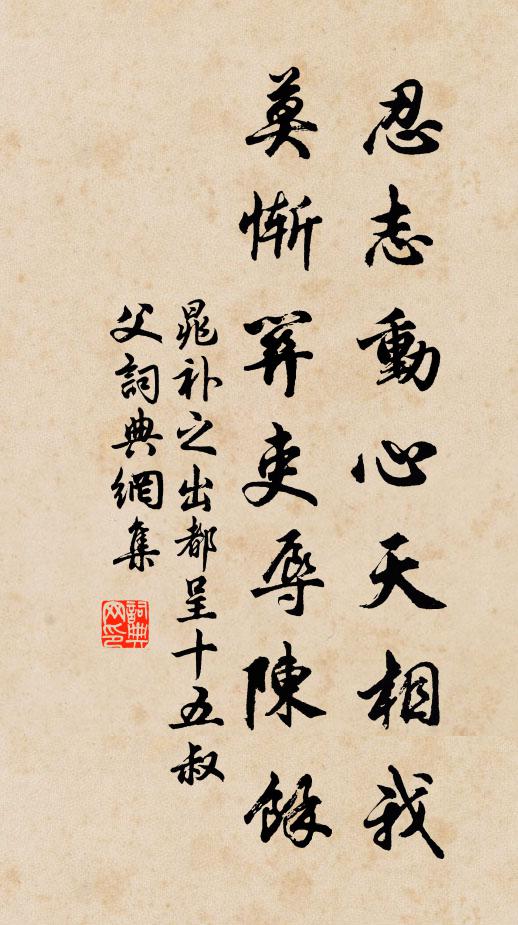 忍志動心天相我
莫慚吏辱陳餘
晁补之出都呈十五叔
父詞典網集
詞典网印